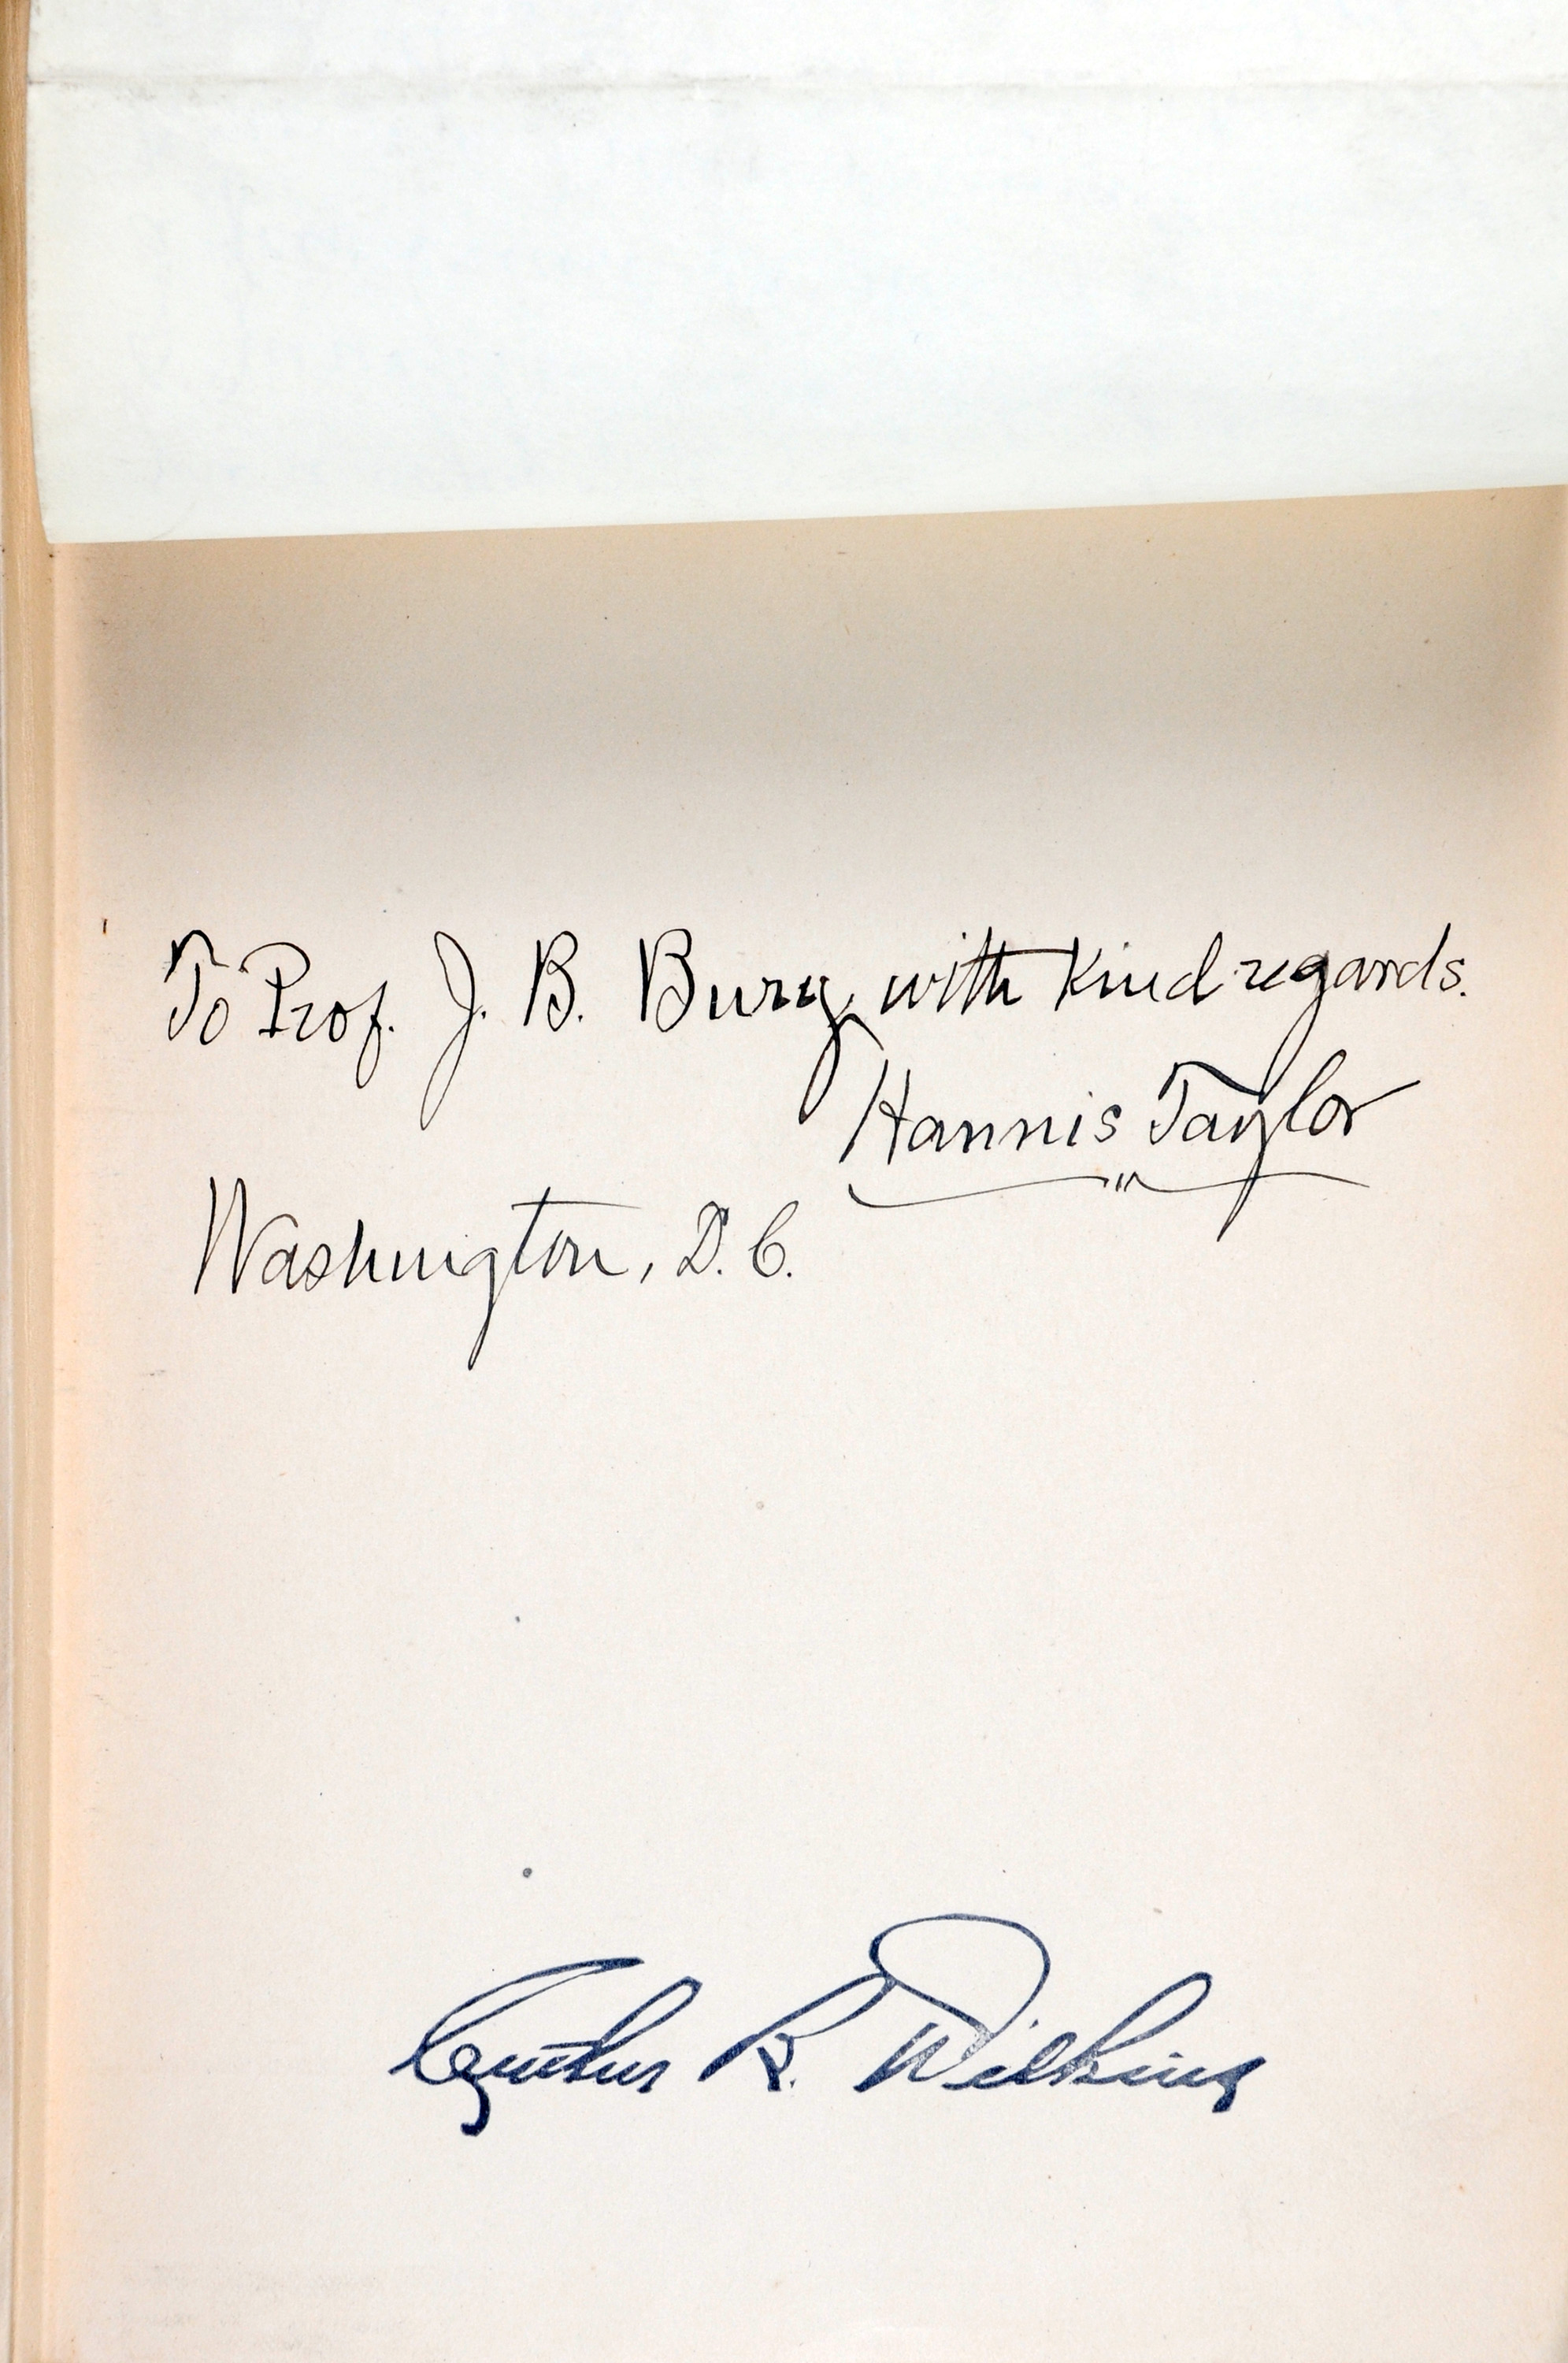 To Prof. J. B. Bury, with kind regards.
Hannis Taylor
Washington, D.C.
R. Wilkins